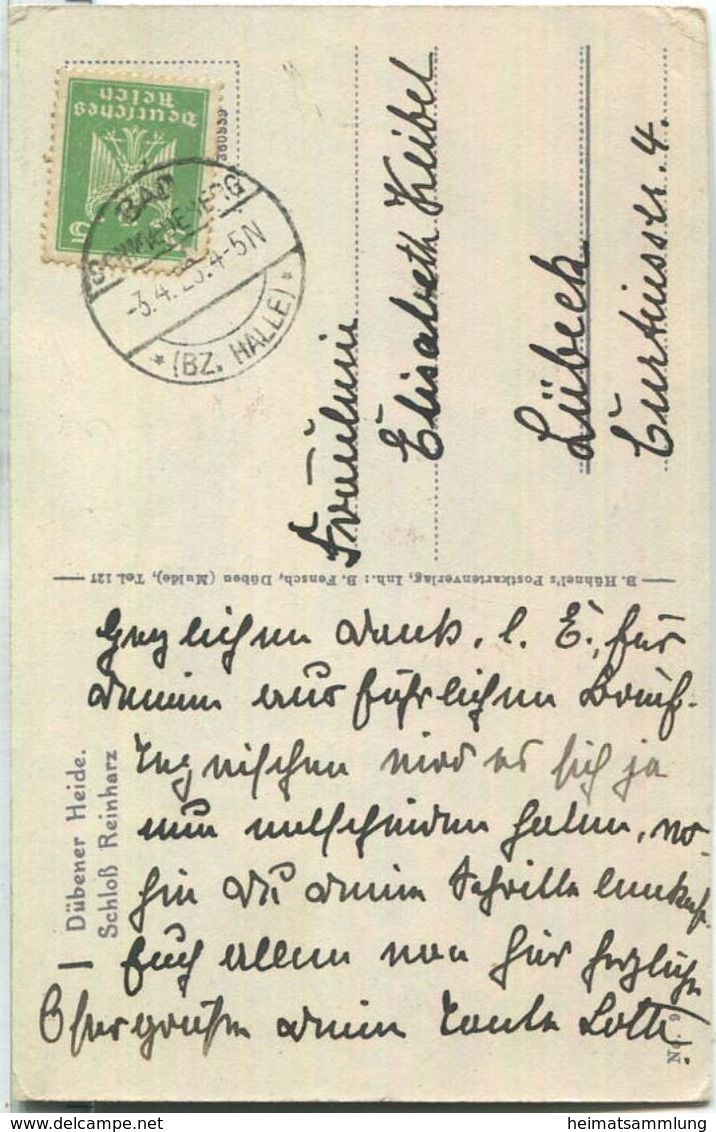 Deutsches
Reich
5
360539
BAD
SCHMIEDEBERG
-3.4.26.4-5N
* (BZ. HALLE) *
Fräulein
Elisabeth Keibel
Lübeck
Curtiusstr. 4.
B. Hühnel's Postkartenverlag, Inh.: B. Pensch, Düben (Mulde), Tel. 121
Dübener Heide.
Schloß Reinharz
No. 9
Herzlichen Dank, l. E., für
deinen ausführlichen Brief.
Inzwischen wird es sich ja
nun entschieden haben, wo-
hin du deine Schritte lenkst.
Euch allen von hier herzliche
Ostergrüße deine Tante Lotte
heimatsammlung